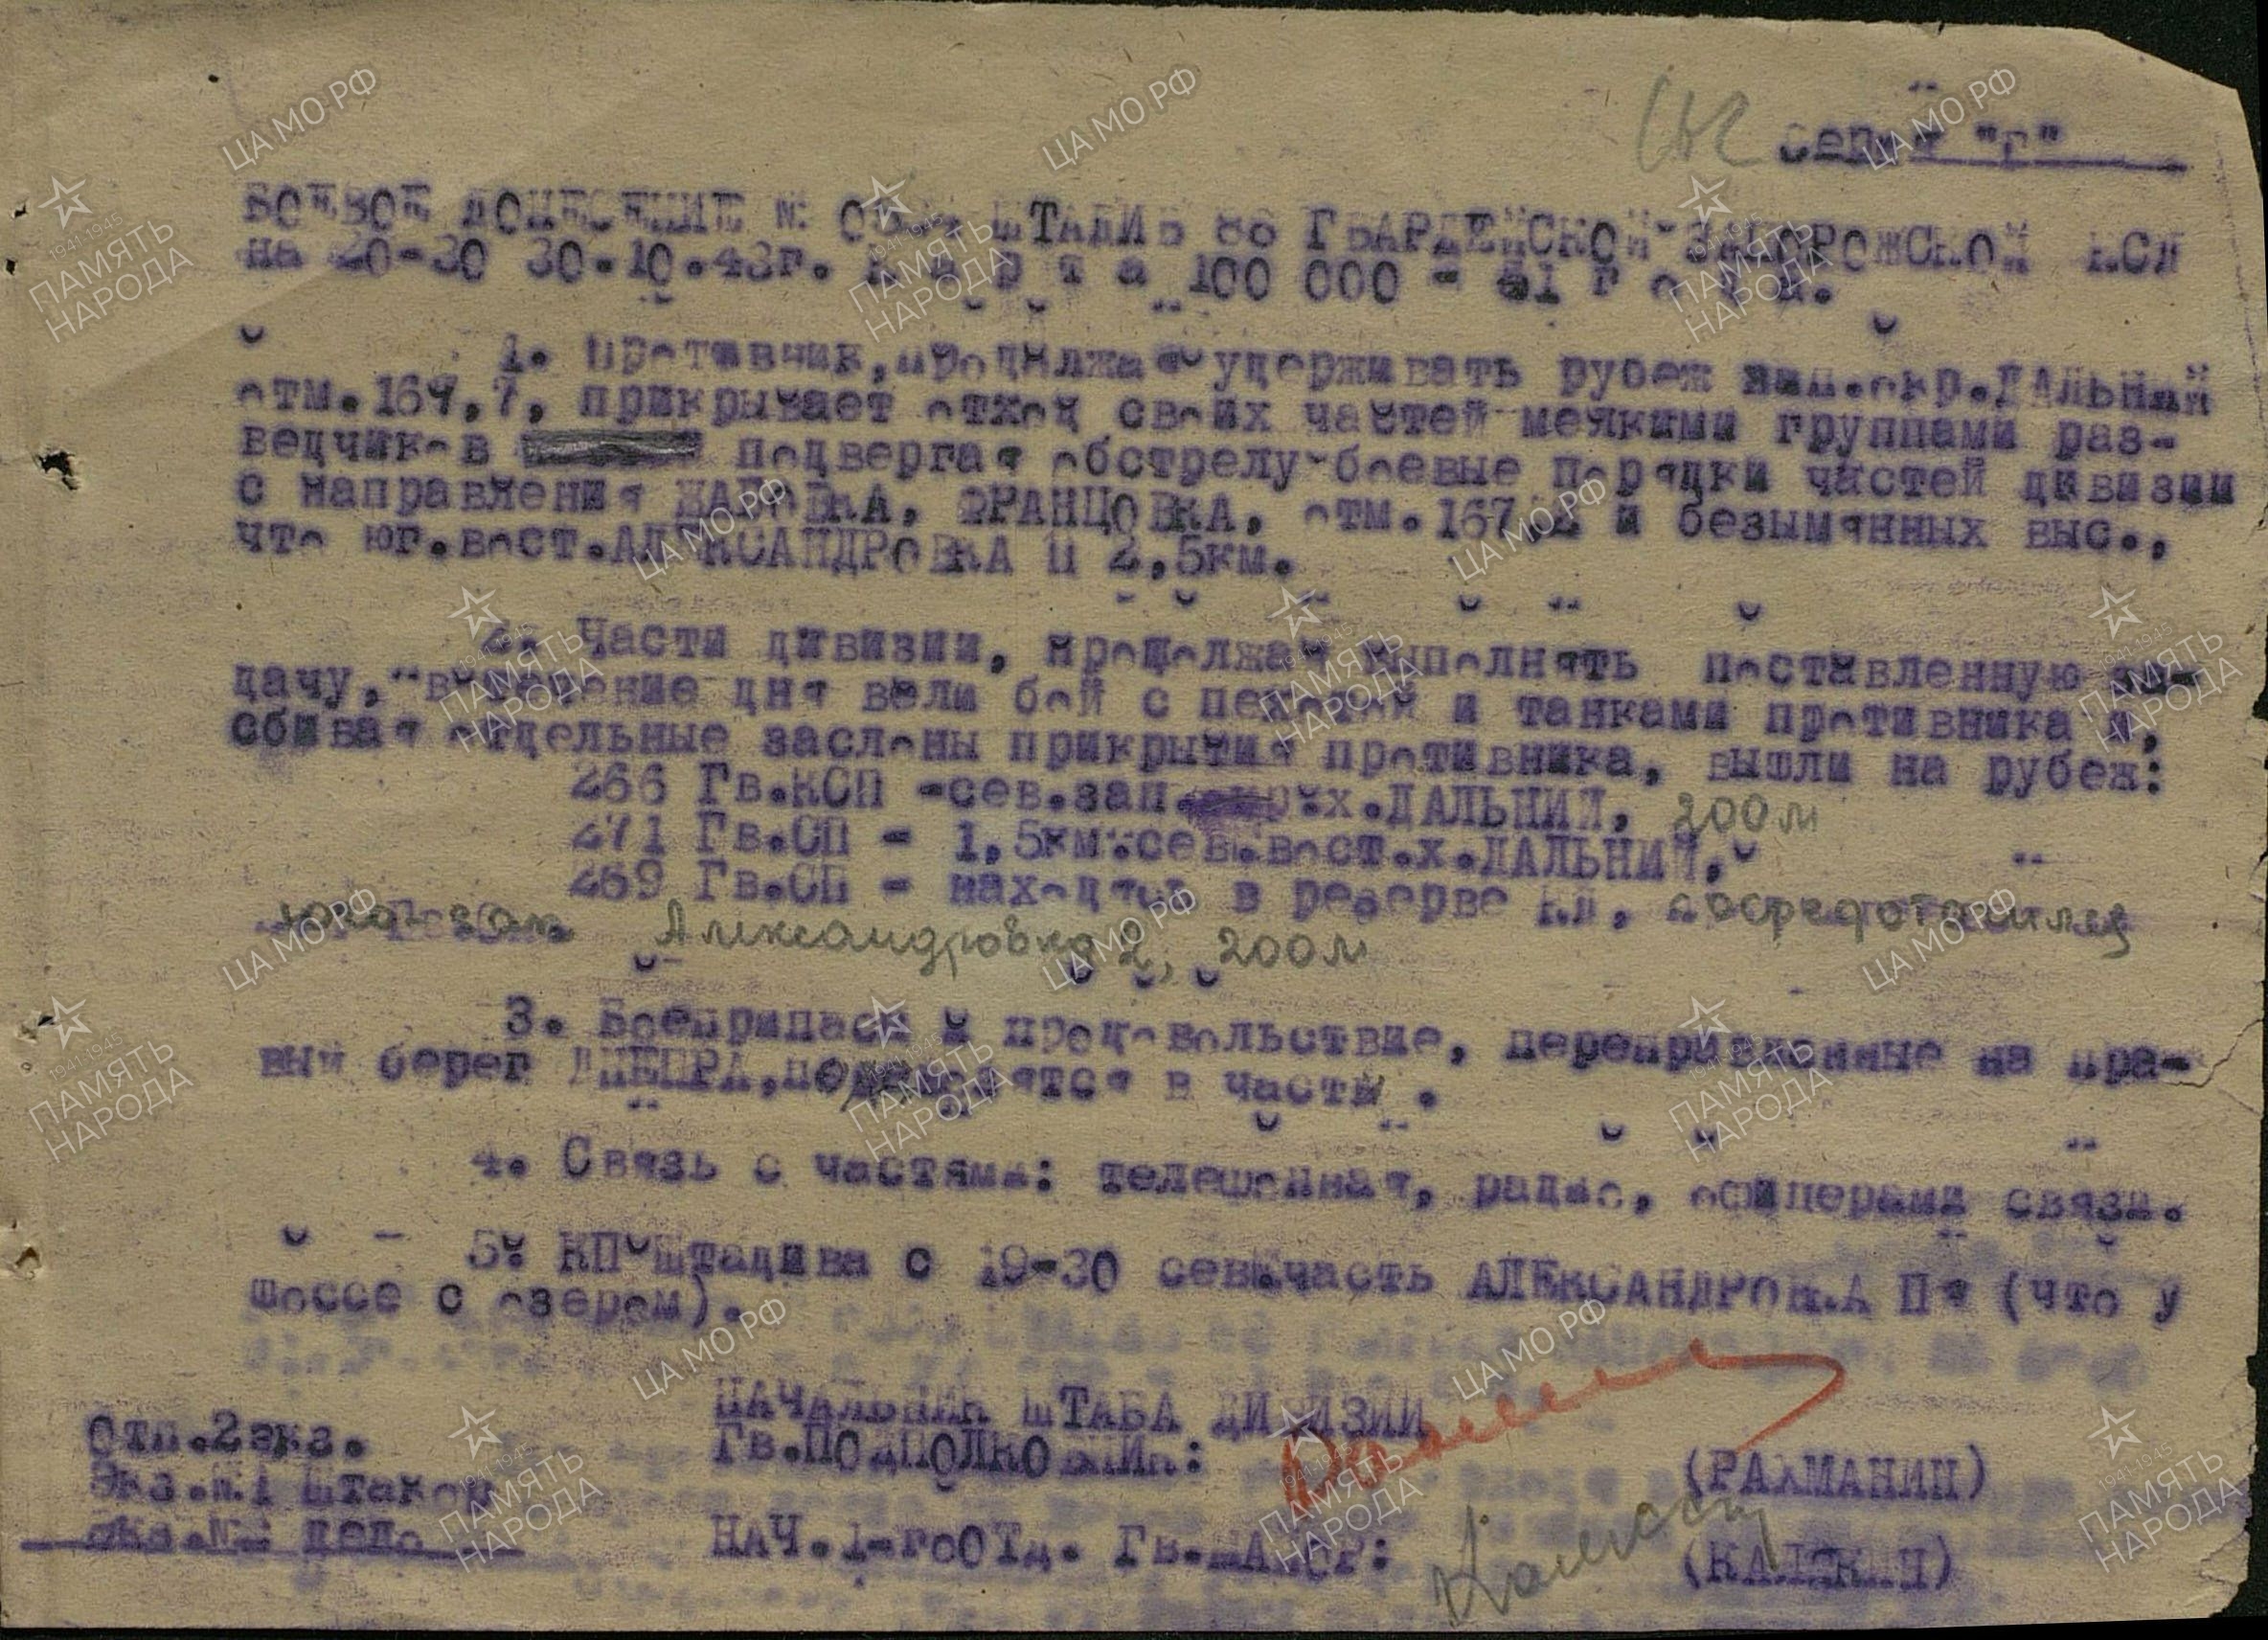 Серия "Г"
БОЕВОЕ ДОНЕСЕНИЕ № ШТАДИВ 88 ГВАРДЕЙСКОЙ ЗАПОРОЖСКОЙ КСД
на 20-30 30.10.43г. К а р т а 100 000 - 41 г о д а.
1. Противник, продолжая удерживать рубеж зап.окр.ДАЛЬНИЙ
отм.167,7, прикрывает отход своих частей мелкими группами раз-
ведчиков подвергая обстрелу боевые порядки частей дивизии
с направления ШАПОВКА, ФРАНЦОВКА, отм.167,2 и безымянных выс.,
что юг.вост.АЛЕКСАНДРОВКА П 2,5км.
2. Части дивизии, продолжая выполнять поставленную за-
дачу, в течение дня вели бой с пехотой и танками противника и,
сбивая отдельные заслоны прикрытия противника, вышли на рубеж:
266 Гв.КСП -сев.зап. х.ДАЛЬНИЙ, 200м
271 Гв.СП - 1,5км.сев.вост.х.ДАЛЬНИЙ,
269 Гв.СП - находится в резерве КД, сосредоточилсЯ
юго-зап Александровка 2, 200м
3. Боеприпасы и продовольствие, переправленные на пра-
вый берег ДНЕПРА, в части .
4. Связь с частями: телефонная, радио, офицерами связи.
5. КП штадива с 19-30 сев.часть АЛЕКСАНДРОВКА Пя (что у
шоссе с озером).
НАЧАЛЬНИК ШТАБА ДИВИЗИИ
Гв.ПОДПОЛКОВНИК: (РАХМАНИН)
НАЧ.1-гоОТД. Гв.МАЙОР: (КАЛЯКИН)
Отп.2экз.
Экз.№1 Штакор
экз.№2 дело
ЦА МО РФ
1941-1945
ПАМЯТЬ
НАРОДА